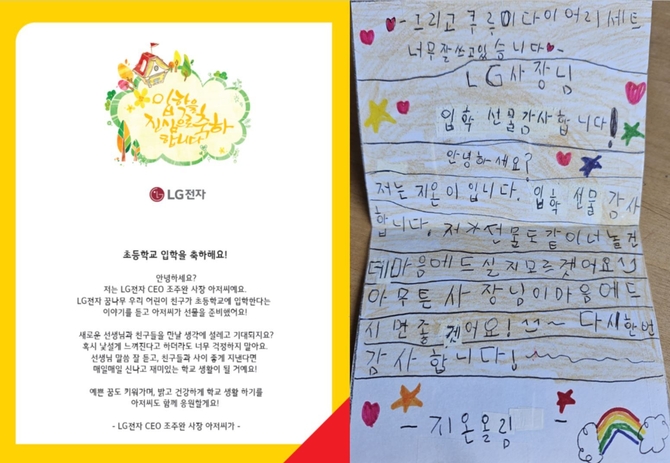 입학을
진심으로 축하
합니다
LG전자
초등학교 입학을 축하해요!
안녕하세요?
저는 LG전자 CEO 조주완 사장 아저씨예요.
LG전자 꿈나무 우리 어린이 친구가 초등학교에 입학한다는
이야기를 듣고 아저씨가 선물을 준비했어요!
새로운 선생님과 친구들을 만날 생각에 설레고 기대되지요?
혹시 낯설게 느껴진다고 하더라도 너무 걱정하지 말아요.
선생님 말씀 잘 듣고, 친구들과 사이 좋게 지낸다면
매일매일 신나고 재미있는 학교 생활이 될 거예요!
예쁜 꿈도 키워가며, 밝고 건강하게 학교 생활 하기를
아저씨도 함께 응원할게요!
- LG전자 CEO 조주완 사장 아저씨가 -
- 그리고 쿠루미다이어리세트
너무잘쓰고있습니다
LG사장님
입학 선물감사합니다!
안녕하세요?
저는 지온이입니다. 입학 선물 감사
합니다. 저가선물도 같이너놓건
데마음에드실지모르겟어요
아무튼 사장님이마음에드
시면좋겠어요! ~ 다시한번
감사합니다!
- 지온올림 -